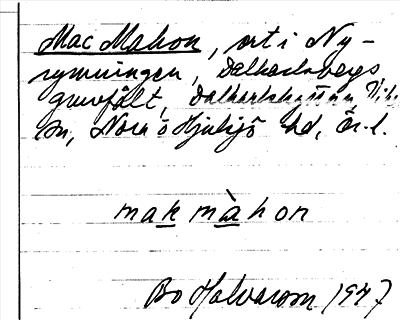 Mac Mahon, ort i Ny-
rymningen, Dalkarlsbergs
gruvfält, Dalkarlshyttan, Vik-
sn, Nora o Hjulsjö hd, Ör. l.
mak màhon
Bo Halvarson 1947